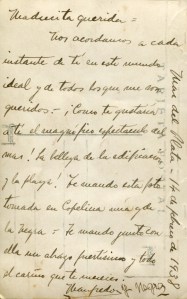 Madrecita querida =
Nos acordamos a cada
instante de ti en este mundo
ideal y de todos los que nos son
queridos. - ¡Como te gustaría
a ti el magnífico espectáculo del
mar! ¡La belleza de la edificación
y la playa! Te mando esta foto
tomada en
la negra - Te mando junto con
ella un abrazo fuertísimo y todo
el cariño que te mereces. -
Manfredo
Mar del Plata - 14 de febrero de 1938